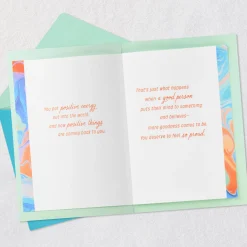 You are positive energy
out into the world,
and now positive things
are coming back to you.
That's just what happens
when a good person
puts their mind to something
and because
more goodness comes to be.
You deserve to feel so proud.